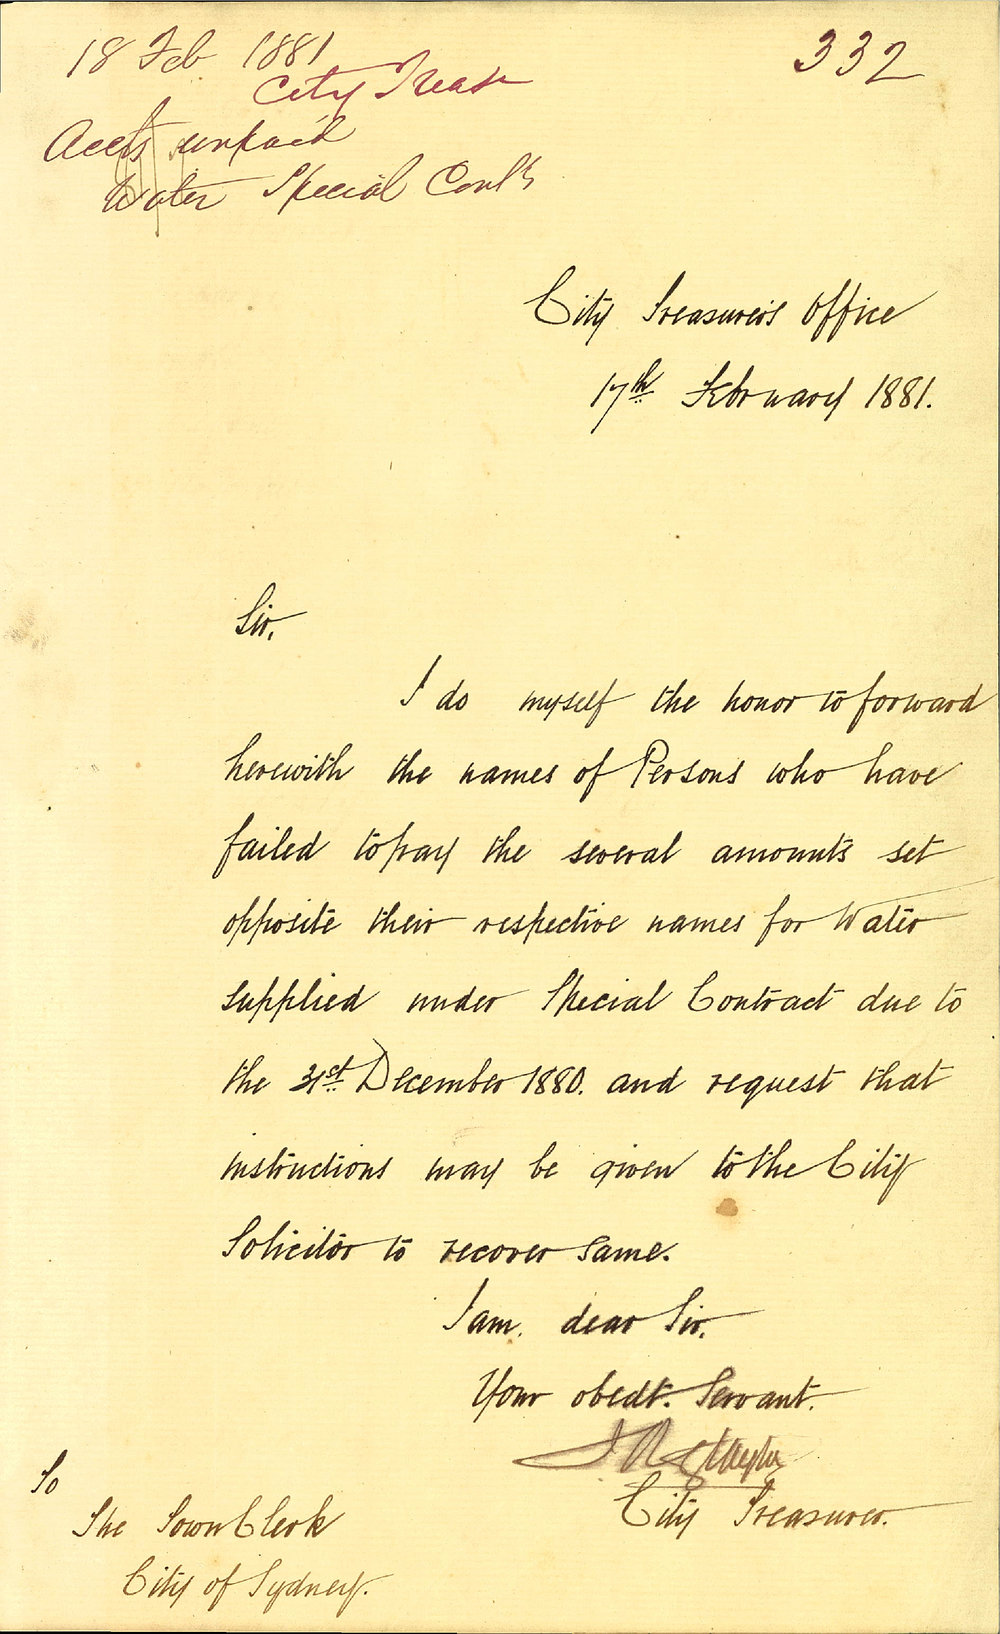 18 Feb 1881
332
City Treasr
Accts unpaid
Water Special Conts
City Treasurer's Office
17th February 1881.
Sir,
I do myself the honor to forward
herewith the names of Persons who have
failed to pay the several amounts set
opposite their respective names for Water
supplied under Special Contract due to
the 31st December 1880. and request that
instructions may be given to the City
Solicitor to recover same.
I am, dear Sir,
Your obedt. Servant.
City Treasurer.
To
The Town Clerk
City of Sydney.